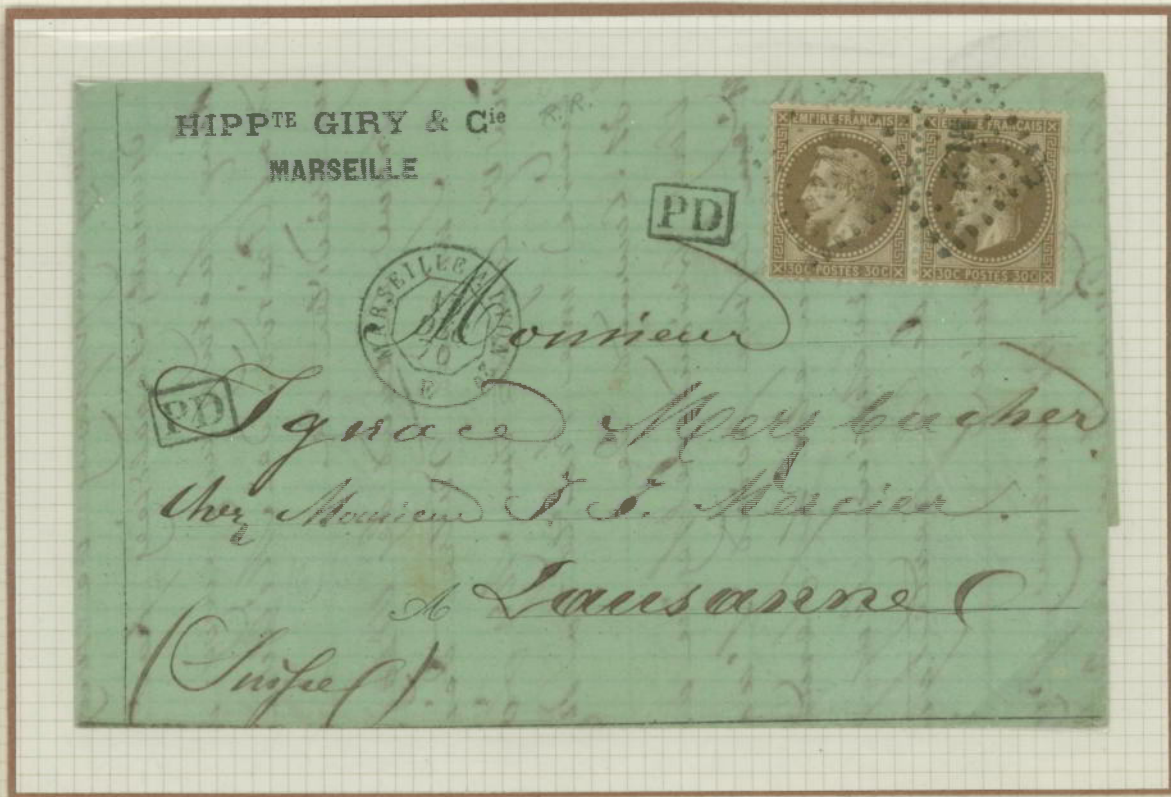 HIPPTE GIRY & Cie
MARSEILLE
R.R.
EMPIRE FRANÇAIS
EMPIRE FRANÇAIS
30C POSTES 30C
30C POSTES 30C
PD
MARSEILLE
70
E
PD
Monsieur
Ignace Merzbacher
chez Monsieur J. J. Mercier.
A Lausanne
(Suisse)